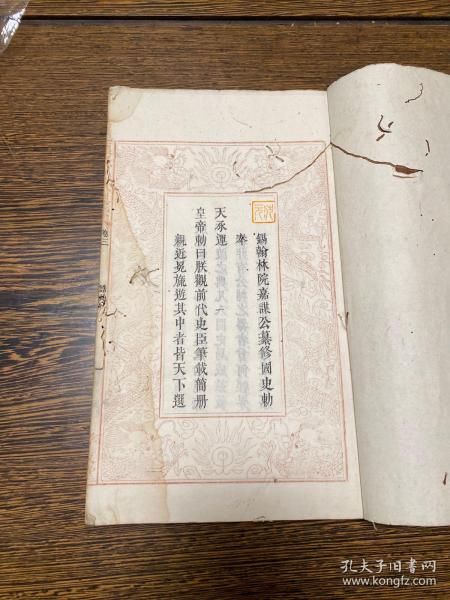 錫翰林院嘉謀公纂修國史勅
奉
天承運
皇帝勅曰朕觀前代史臣筆載簡册
親近冕旒遊其中者皆天下選
卷三
孔夫子旧书网
www.kongfz.com